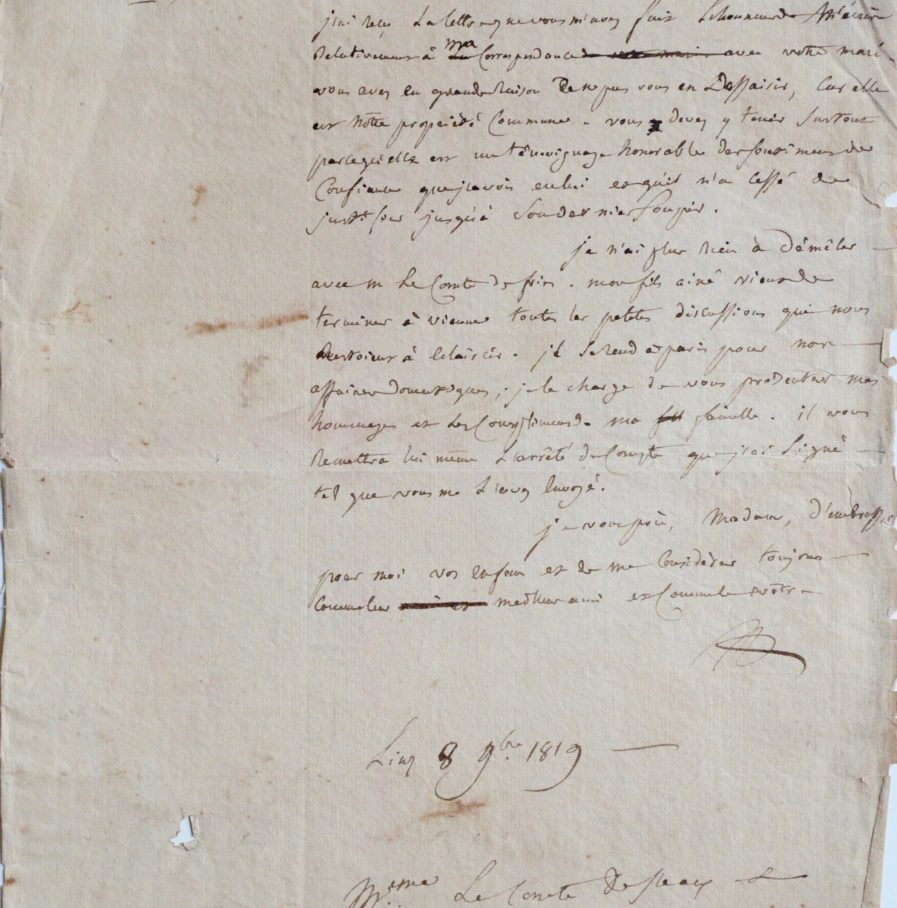 j'ai reçu la lettre que vous m'avez fait l'honneur de m'écrire
Relativement à ma Correspondance avec votre mari.
vous avez eu grande raison De ne pas vous en Dessaisir, Car elle
est notre propriété Commune. vous devez y tenir surtout
parcequ'elle est un témoignage honorable des sentimens de
Confiance que j'avois en lui et qu'il n'a cessé de
justifier jusqu'à son dernier soupir.
je n'ai plus rien à Démêler
avec m Le Comte de fries. mon fils ainé vient de
terminer à vienne toutes les petites discussions qui nous
restoient à éclaircir. il se rend à paris pour nos
affaires Domestiques; je le charge de vous présenter mes
hommages et les Complimens de ma famille. il vous
Remettra lui même L'arrêté de Compte que j'ai signé
tel que vous me L'avez Envoyé.
je vous prie, Madame, d'embrasser
pour moi vos enfans et de me Considérer toujours
Comme leur meilleur ami et Comme le votre
8 9bre 1819
Mme Le Comte